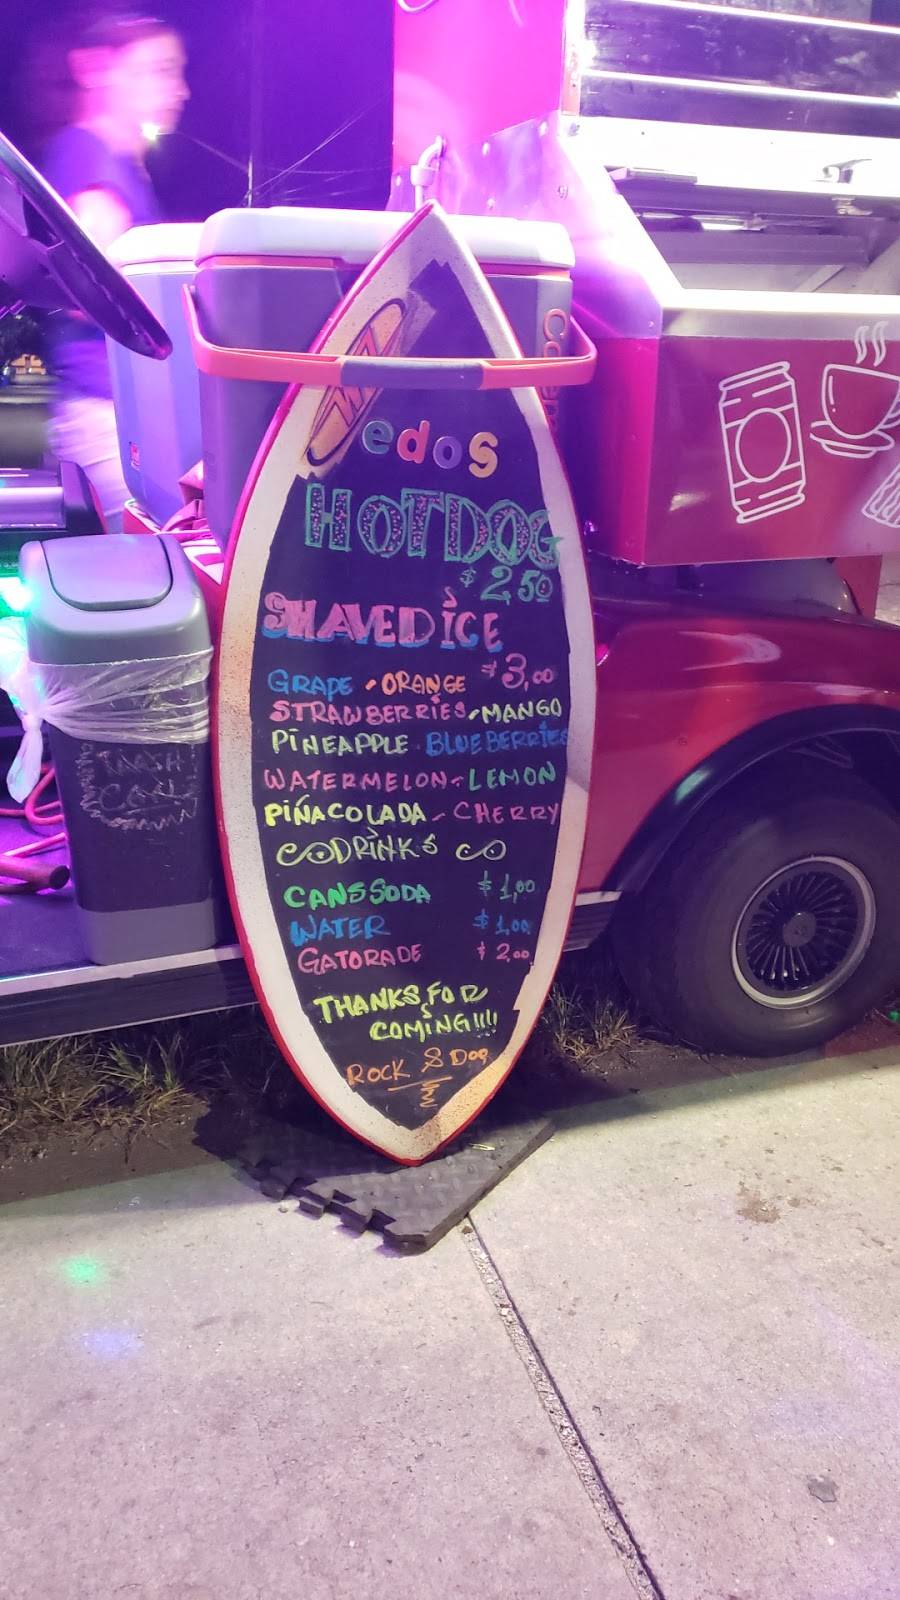 edos
HOTDOG
$2,50
SHAVED ICE
$3,00
GRAPE - ORANGE
STRAWBERRIES - MANGO
PINEAPPLE BLUEBERRIES
WATERMELON - LEMON
PIÑACOLADA - CHERRY
DRINKS
CANS SODA $1,00
WATER $1,00
GATORADE $2,00
THANKS FOR
COMING!!!!
ROCK & DOG